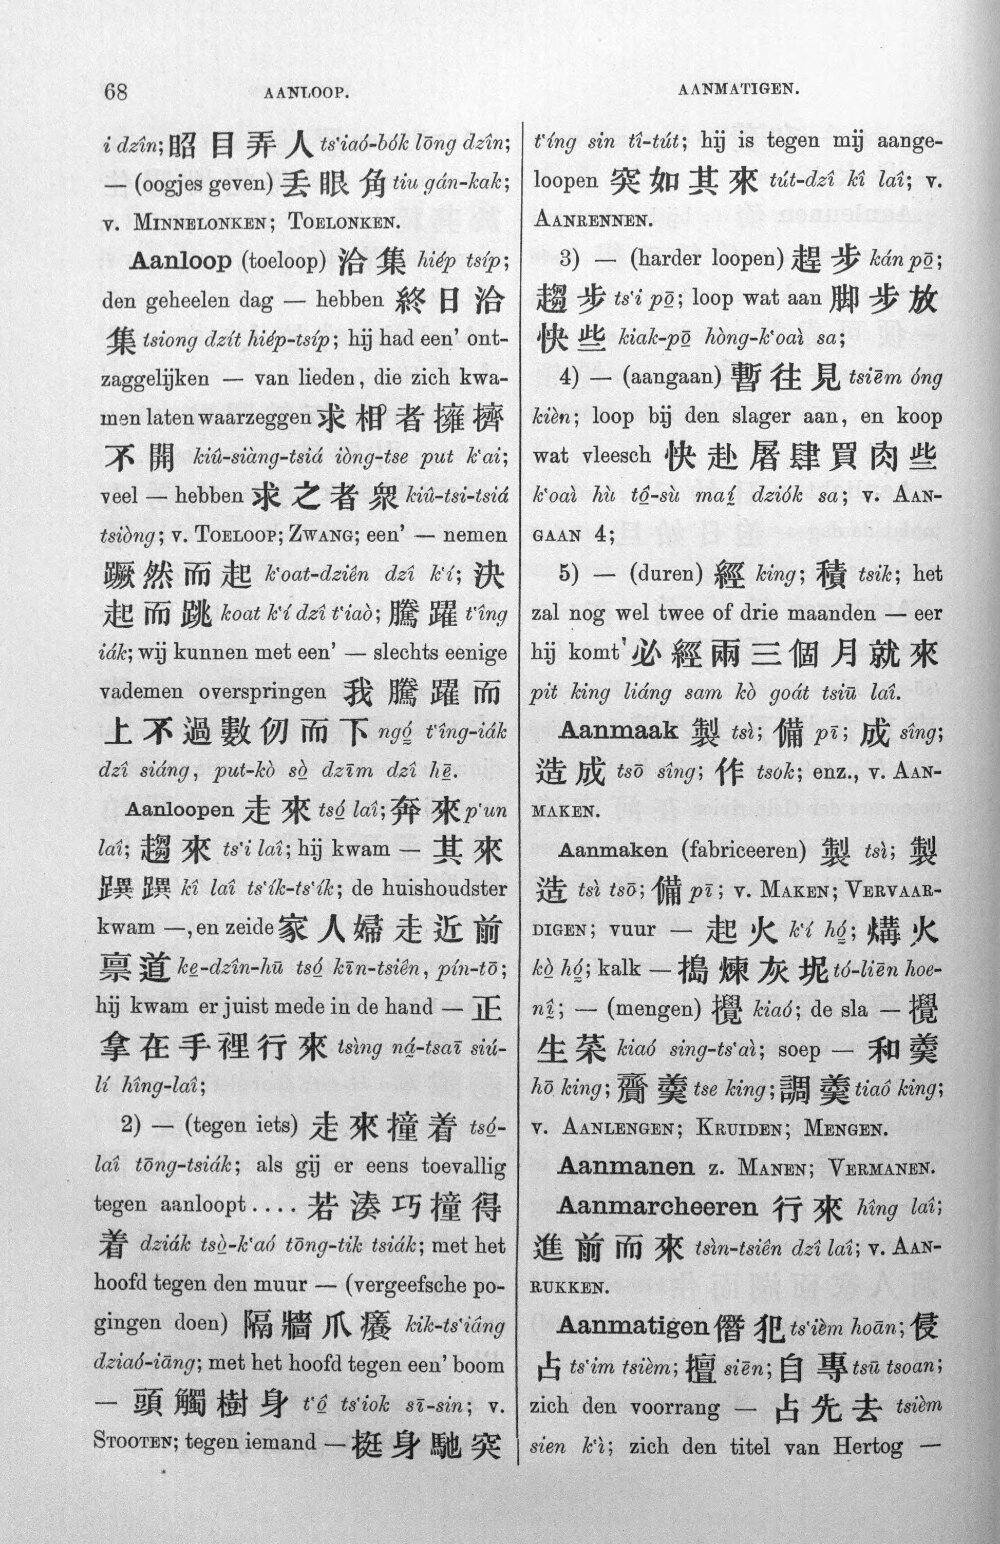 68
AANLOOP.
AANMATIGEN.
i dzîn; 眧目弄人 ts‘iaó-bók lōng dzîn;
— (oogjes geven) 丟眼角 tiu gán-kak;
v. MINNELONKEN; TOELONKEN.
Aanloop (toeloop) 洽集 hiép tsíp;
den geheelen dag — hebben 終日洽
集 tsiong dzít hiép-tsíp; hij had een’ ont-
zaggelijken — van lieden, die zich kwa-
men laten waarzeggen 求相者擁擠
不開 kiû-siàng-tsiá iòng-tse put k‘ai;
veel — hebben 求之者衆 kiû-tsi-tsiá
tsiòng; v. TOELOOP; ZWANG; een’ — nemen
蹶然而起 k‘oat-dziên dzî k‘í; 決
起而跳 koat k‘í dzî t‘iaò; 騰躍 t‘îng
iák; wij kunnen met een’ — slechts eenige
vademen overspringen 我騰躍而
上不過數仞而下 ngó̱ t‘îng-iák
dzî siáng, put-kò sò̱ dzīm dzî hē̱.
Aanloopen 走來 tsó̱ laî; 奔來 p‘un
laî; 趨來 ts‘i laî; hij kwam — 其來
𨅔𨅔 kî laî ts‘ík-ts‘ík; de huishoudster
kwam —, en zeide 家人婦走近前
禀道 ke̱-dzîn-hū tsó̱ kīn-tsiên, pín-tō;
hij kwam er juist mede in de hand — 正
拿在手裡行來 tsìng ná̱-tsaī siú-
lí hîng-laî;
2) — (tegen iets) 走來撞着 tsó̱-
laî tōng-tsiák; als gij er eens toevallig
tegen aanloopt.... 若湊巧撞得
着 dziák tsò̱-k‘aó tōng-tik tsiák; met het
hoofd tegen den muur — (vergeefsche po-
gingen doen) 隔牆爪癢 kik-ts‘iáng
dziaó-iāng; met het hoofd tegen een’ boom
— 頭觸樹身 t‘ô̱ ts‘iok sī-sin; v.
STOOTEN; tegen iemand — 挺身馳突
t‘íng sin tî-tút; hij is tegen mij aange-
loopen 突如其來 tút-dzî kî laî; v.
AANRENNEN.
3) — (harder loopen) 趕步 kán pō̱;
趨步 ts‘i pō̱; loop wat aan 脚步放
快些 kiak-pō̱ hòng-k‘oaì sa;
4) — (aangaan) 暫往見 tsiēm óng
kièn; loop bij den slager aan, en koop
wat vleesch 快赴屠肆買肉些
k‘oaì hù tô̱-sù maí̱ dziók sa; v. AAN-
GAAN 4;
5) — (duren) 經 king; 積 tsik; het
zal nog wel twee of drie maanden — eer
hij komt 必經兩三個月就來
pit king liáng sam kò goát tsiū laî.
Aanmaak 製 tsì; 備 pī; 成 sîng;
造成 tsō sîng; 作 tsok; enz., v. AAN-
MAKEN.
Aanmaken (fabriceeren) 製 tsì; 製
造 tsì tsō; 備 pī; v. MAKEN; VERVAAR-
DIGEN; vuur — 起火 k‘í hó̱; 煹火
kò̱ hó̱; kalk — 搗煉灰坭 tó-liēn hoe-
nî̱; — (mengen) 攪 kiaó; de sla — 攪
生菜 kiaó sing-ts‘aì; soep — 和羹
hō king; 齎羹 tse king; 調羹 tiaô king;
v. AANLENGEN; KRUIDEN; MENGEN.
Aanmanen z. MANEN; VERMANEN.
Aanmarcheeren 行來 hîng laî;
進前而來 tsìn-tsiên dzî laî; v. AAN-
RUKKEN.
Aanmatigen 僭犯 ts‘ièm hoān; 侵
占 ts‘im tsièm; 擅 siēn; 自專 tsū tsoan;
zich den voorrang — 占先去 tsièm
sien k‘ì; zich den titel van Hertog —